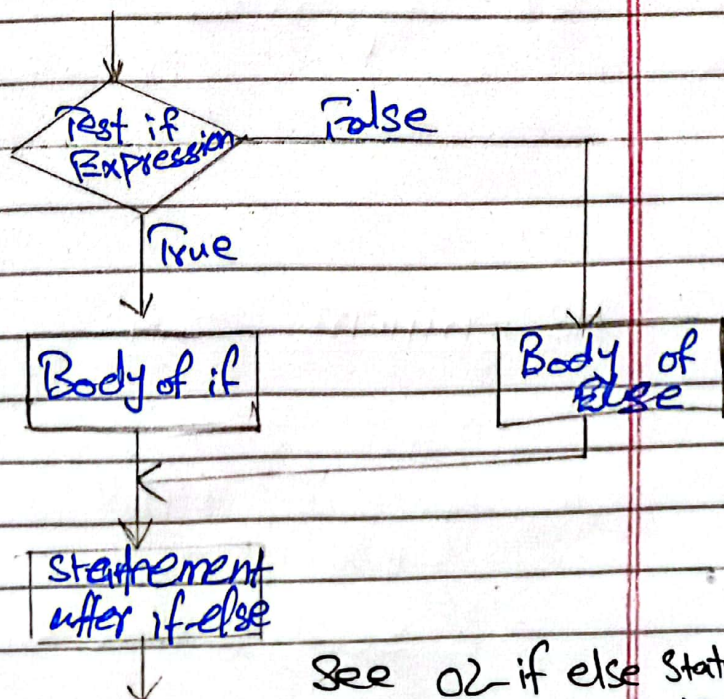 Test if
Expression
False
True
Body of if
Body of
Else
statement
after if-else
See 02-if else Stat